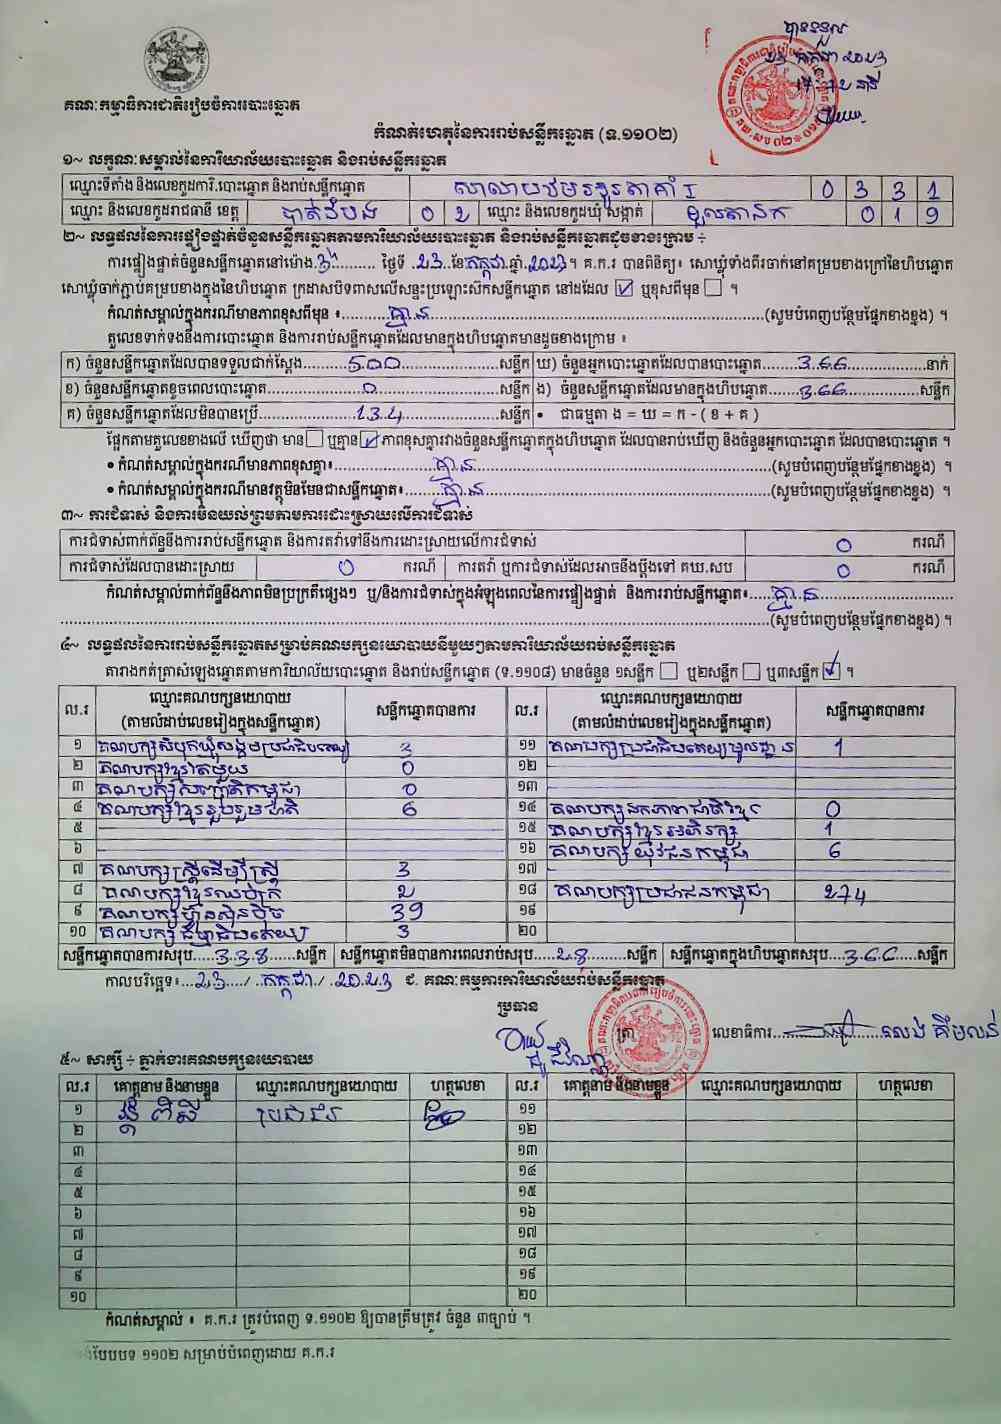 បានទទួល
២៤ កក្កដា ២០២៣
គណៈកម្មាធិការជាតិរៀបចំការបោះឆ្នោត
កំណត់ហេតុនៃការរាប់សន្លឹកឆ្នោត (ទ.១១០២)
១~ លក្ខណៈសម្គាល់នៃការិយាល័យបោះឆ្នោត និងរាប់សន្លឹកឆ្នោត
ឈ្មោះទីតាំង និងលេខកូដការិ.បោះឆ្នោត និងរាប់សន្លឹកឆ្នោត 0 3 3 1
ឈ្មោះ និងលេខកូដរាជធានី ខេត្ត បាត់ដំបង 0 2 ឈ្មោះ និងលេខកូដឃុំ សង្កាត់ មួលតាឯក 0 1 9
២~ លទ្ធផលនៃការផ្ទៀងផ្ទាត់ចំនួនសន្លឹកឆ្នោតតាមការិយាល័យបោះឆ្នោត និងរាប់សន្លឹកឆ្នោតដូចខាងក្រោម ÷
ការផ្ទៀងផ្ទាត់ចំនួនសន្លឹកឆ្នោតនៅម៉ោង.3........... ថ្ងៃទី ..23..ខែកក្កដា.ឆ្នាំ.2023។ គ.ក.រ បានពិនិត្យ៖ សោឃ្លុំទាំងពីរចាក់នៅគម្របខាងក្រៅនៃហិបឆ្នោត
សោឃ្លុំចាក់ភ្ជាប់គម្របខាងក្នុងនៃហិបឆ្នោត ក្រដាសបិទពាសលើសន្ទះប្រឡោះស៊ីកសន្លឹកឆ្នោត នៅដដែល ☑ ឬខុសពីមុន ☐ ។
កំណត់សម្គាល់ក្នុងករណីមានភាពខុសពីមុន ៖..........គ្មាន..........(សូមបំពេញបន្ថែមផ្នែកខាងខ្នង) ។
តួលេខទាក់ទងនឹងការបោះឆ្នោត និងការរាប់សន្លឹកឆ្នោតដែលមានក្នុងហិបឆ្នោតមានដូចខាងក្រោម ៖
ក) ចំនួនសន្លឹកឆ្នោតដែលបានទទួលជាក់ស្ដែង........500........សន្លឹក ឃ) ចំនួនអ្នកបោះឆ្នោតដែលបានបោះឆ្នោត......366......នាក់
ខ) ចំនួនសន្លឹកឆ្នោតខូចពេលបោះឆ្នោត........0........សន្លឹក ង) ចំនួនសន្លឹកឆ្នោតដែលមានក្នុងហិបឆ្នោត......366......សន្លឹក
គ) ចំនួនសន្លឹកឆ្នោតដែលមិនបានប្រើ........134........សន្លឹក • ជាធម្មតា ង = ឃ = ក - ( ខ + គ )
ផ្អែកតាមតួលេខខាងលើ ឃើញថា មាន☐ ឬគ្មាន☑ ភាពខុសគ្នារវាងចំនួនសន្លឹកឆ្នោតក្នុងហិបឆ្នោត ដែលបានរាប់ឃើញ និងចំនួនអ្នកបោះឆ្នោត ដែលបានបោះឆ្នោត ។
• កំណត់សម្គាល់ក្នុងករណីមានភាពខុសគ្នា៖........គ្មាន........(សូមបំពេញបន្ថែមផ្នែកខាងខ្នង) ។
• កំណត់សម្គាល់ក្នុងករណីមានវត្ថុមិនមែនជាសន្លឹកឆ្នោត៖........គ្មាន........(សូមបំពេញបន្ថែមផ្នែកខាងខ្នង) ។
៣~ ការជំទាស់ និងការមិនយល់ព្រមតាមការដោះស្រាយលើការជំទាស់
ការជំទាស់ពាក់ព័ន្ធនឹងការរាប់សន្លឹកឆ្នោត និងការតវ៉ាទៅនឹងការដោះស្រាយលើការជំទាស់ 0 ករណី
ការជំទាស់ដែលបានដោះស្រាយ 0 ករណី ការតវ៉ា ឬការជំទាស់ដែលអាចនឹងប្ដឹងទៅ គឃ.សប 0 ករណី
កំណត់សម្គាល់ពាក់ព័ន្ធនឹងភាពមិនប្រក្រតីផ្សេងៗ ឬ/និងការជំទាស់ក្នុងអំឡុងពេលនៃការផ្ទៀងផ្ទាត់ និងការរាប់សន្លឹកឆ្នោត៖......គ្មាន......
..........(សូមបំពេញបន្ថែមផ្នែកខាងខ្នង) ។
៤~ លទ្ធផលនៃការរាប់សន្លឹកឆ្នោតសម្រាប់គណបក្សនយោបាយនីមួយៗតាមការិយាល័យរាប់សន្លឹកឆ្នោត
តារាងកត់ត្រាសំឡេងឆ្នោតតាមការិយាល័យបោះឆ្នោត និងរាប់សន្លឹកឆ្នោត (ទ.១១០៨) មានចំនួន ១សន្លឹក ☐ ឬ២សន្លឹក ☐ ឬ៣សន្លឹក ☑ ។
ល.រ ឈ្មោះគណបក្សនយោបាយ (តាមលំដាប់លេខរៀងក្នុងសន្លឹកឆ្នោត) សន្លឹកឆ្នោតបានការ ល.រ ឈ្មោះគណបក្សនយោបាយ (តាមលំដាប់លេខរៀងក្នុងសន្លឹកឆ្នោត) សន្លឹកឆ្នោតបានការ
១ គណបក្សសំបុកឃ្មុំសង្គមប្រជាធិបតេយ្យ 3 ១១ គណបក្សប្រជាធិបតេយ្យមូលដ្ឋាន 1
២ គណបក្សខ្មែរតែមួយ 0 ១២
៣ គណបក្សសញ្ជាតិកម្ពុជា 0 ១៣
៤ គណបក្សខ្មែររួបរួមជាតិ 6 ១៤ គណបក្សឯកភាពជាតិខ្មែរ 0
៥ ១៥ គណបក្សខ្មែរអភិរក្ស 1
៦ ១៦ គណបក្សយុវជនកម្ពុជា 6
៧ គណបក្សស្ត្រីដើម្បីស្ត្រី 3 ១៧
៨ គណបក្សខ្មែរឈប់ក្រ 2 ១៨ គណបក្សប្រជាជនកម្ពុជា 274
៩ គណបក្សហ៊្វុនស៊ិនប៉ិច 39 ១៩
១០ គណបក្សធម្មាធិបតេយ្យ 3 ២០
សន្លឹកឆ្នោតបានការសរុប.....338.....សន្លឹក សន្លឹកឆ្នោតមិនបានការពេលរាប់សរុប.....28.....សន្លឹក សន្លឹកឆ្នោតក្នុងហិបឆ្នោតសរុប...366....សន្លឹក
កាលបរិច្ឆេទ៖...23.../..កក្កដា./..2023 ជ. គណៈកម្មការការិយាល័យរាប់សន្លឹកឆ្នោត
ប្រធាន
ត្រា
លេខាធិការ
៥~ សាក្សី ÷ ភ្នាក់ងារគណបក្សនយោបាយ
ល.រ គោត្តនាម និងនាមខ្លួន ឈ្មោះគណបក្សនយោបាយ ហត្ថលេខា ល.រ គោត្តនាម និងនាមខ្លួន ឈ្មោះគណបក្សនយោបាយ ហត្ថលេខា
១ ១១
២ ១២
៣ ១៣
៤ ១៤
៥ ១៥
៦ ១៦
៧ ១៧
៨ ១៨
៩ ១៩
១០ ២០
កំណត់សម្គាល់ ៖ គ.ក.រ ត្រូវបំពេញ ទ.១១០២ ឱ្យបានត្រឹមត្រូវ ចំនួន ៣ច្បាប់ ។
បែបបទ ១១០២ សម្រាប់បំពេញដោយ គ.ក.រ